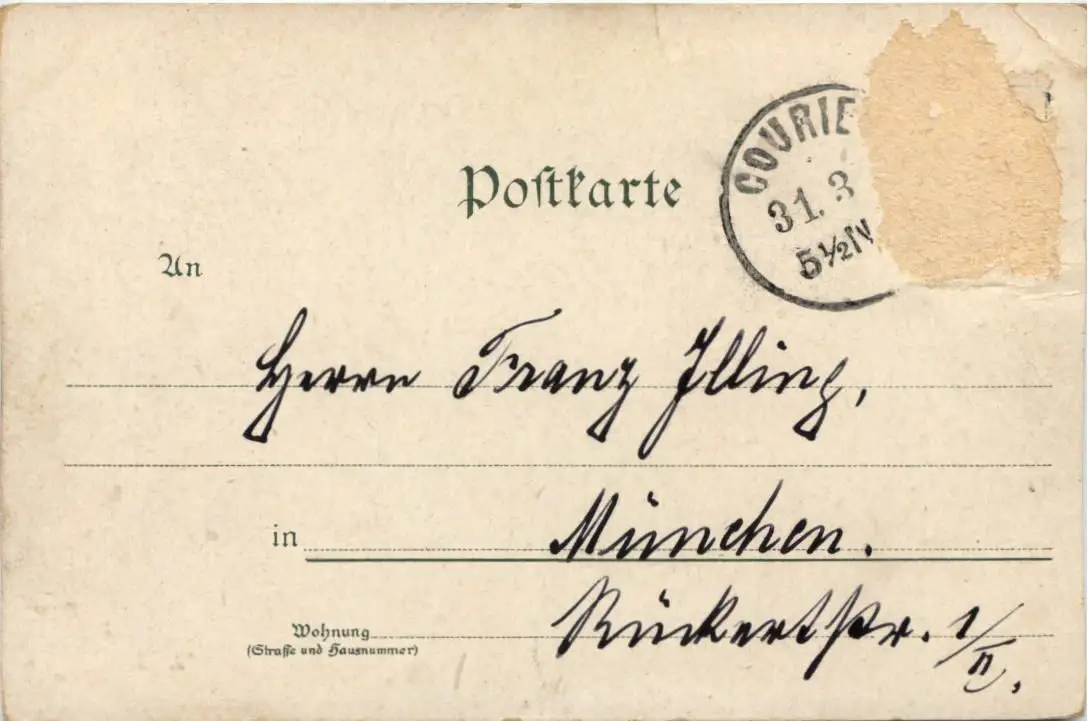 COURIE
31. 3
5½ IV
Postkarte
An
Herrn Franz Illing,
in München.
Rückertstr. 1/II.
Wohnung
(Straße und Hausnummer)